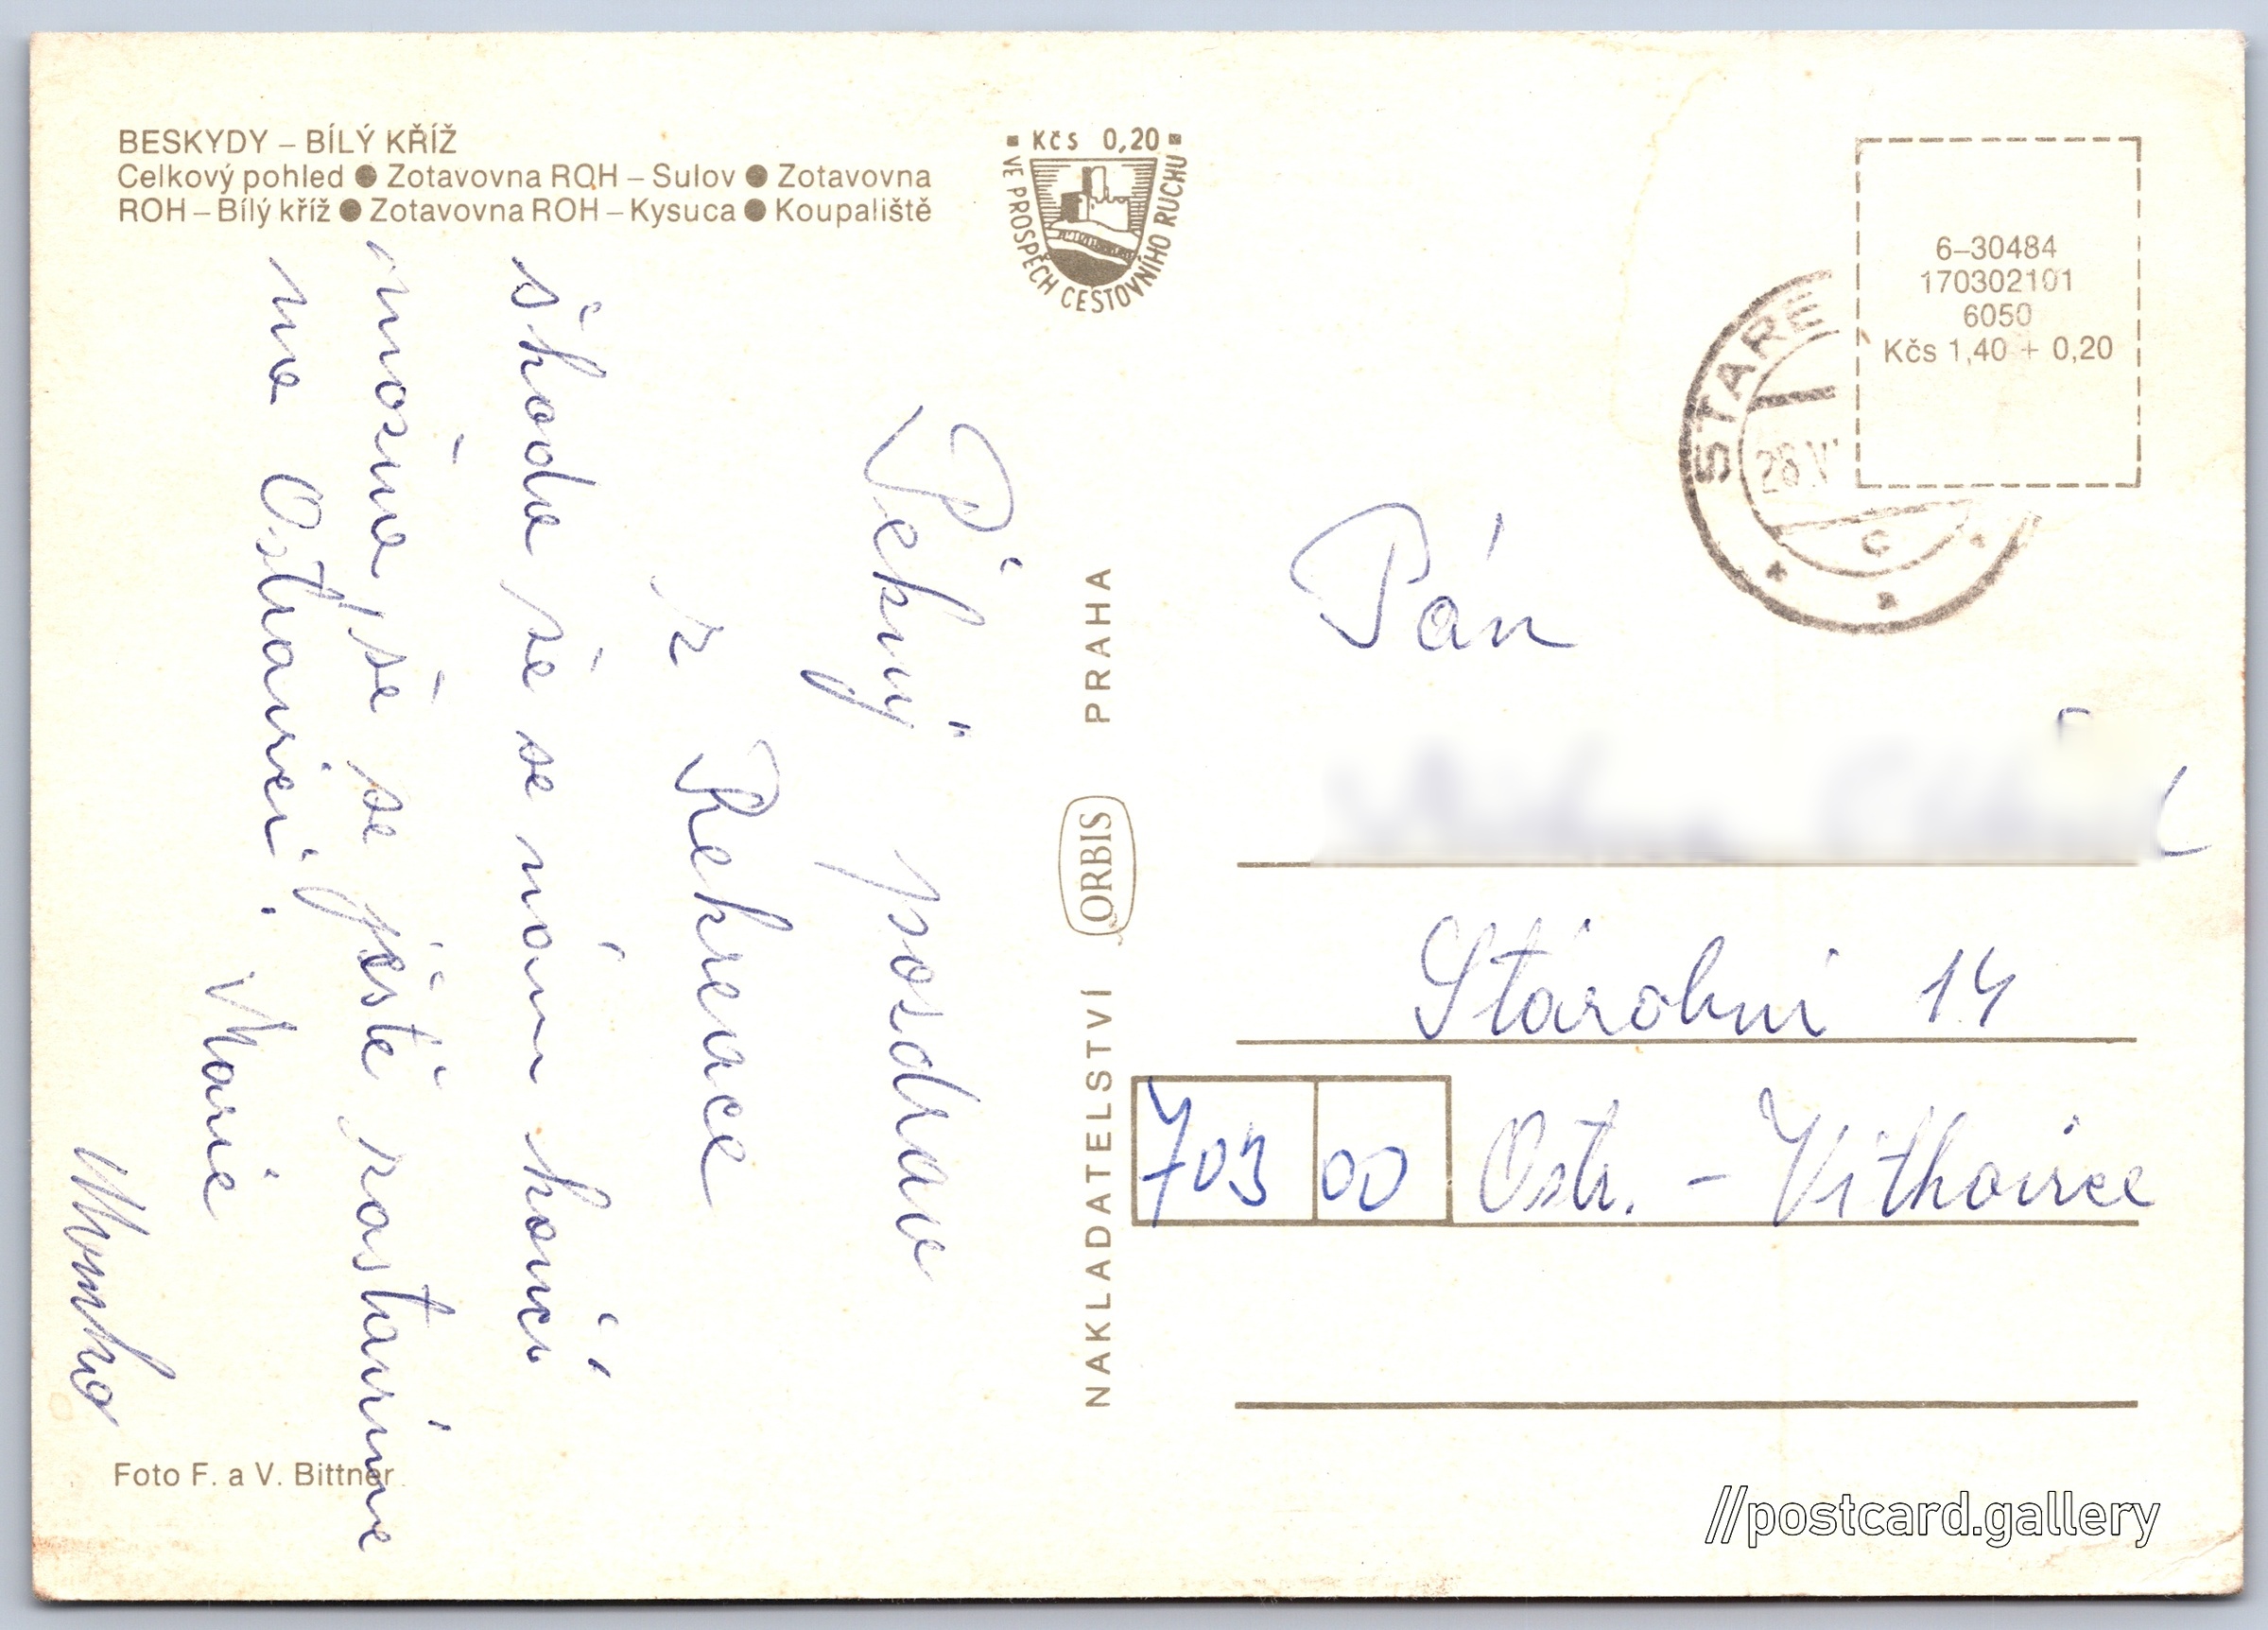 BESKYDY – BÍLÝ KŘÍŽ
Celkový pohled ● Zotavovna ROH – Sulov ● Zotavovna
ROH – Bílý kříž ● Zotavovna ROH – Kysuca ● Koupaliště
Kčs 0,20
VE PROSPĚCH CESTOVNÍHO RUCHU
6–30484
170302101
6050
Kčs 1,40 + 0,20
STARÉ
28.V
C
Pěkný pozdrav
z Rekreace
škoda že se nám končí
možna, že se ještě zastavíme
na Ostravici.
Marie
NAKLADATELSTVÍ ORBIS PRAHA
Pán
Stárobní 14
703 00 Ostr. – Vitkovice
Foto F. a V. Bittner
//postcard.gallery